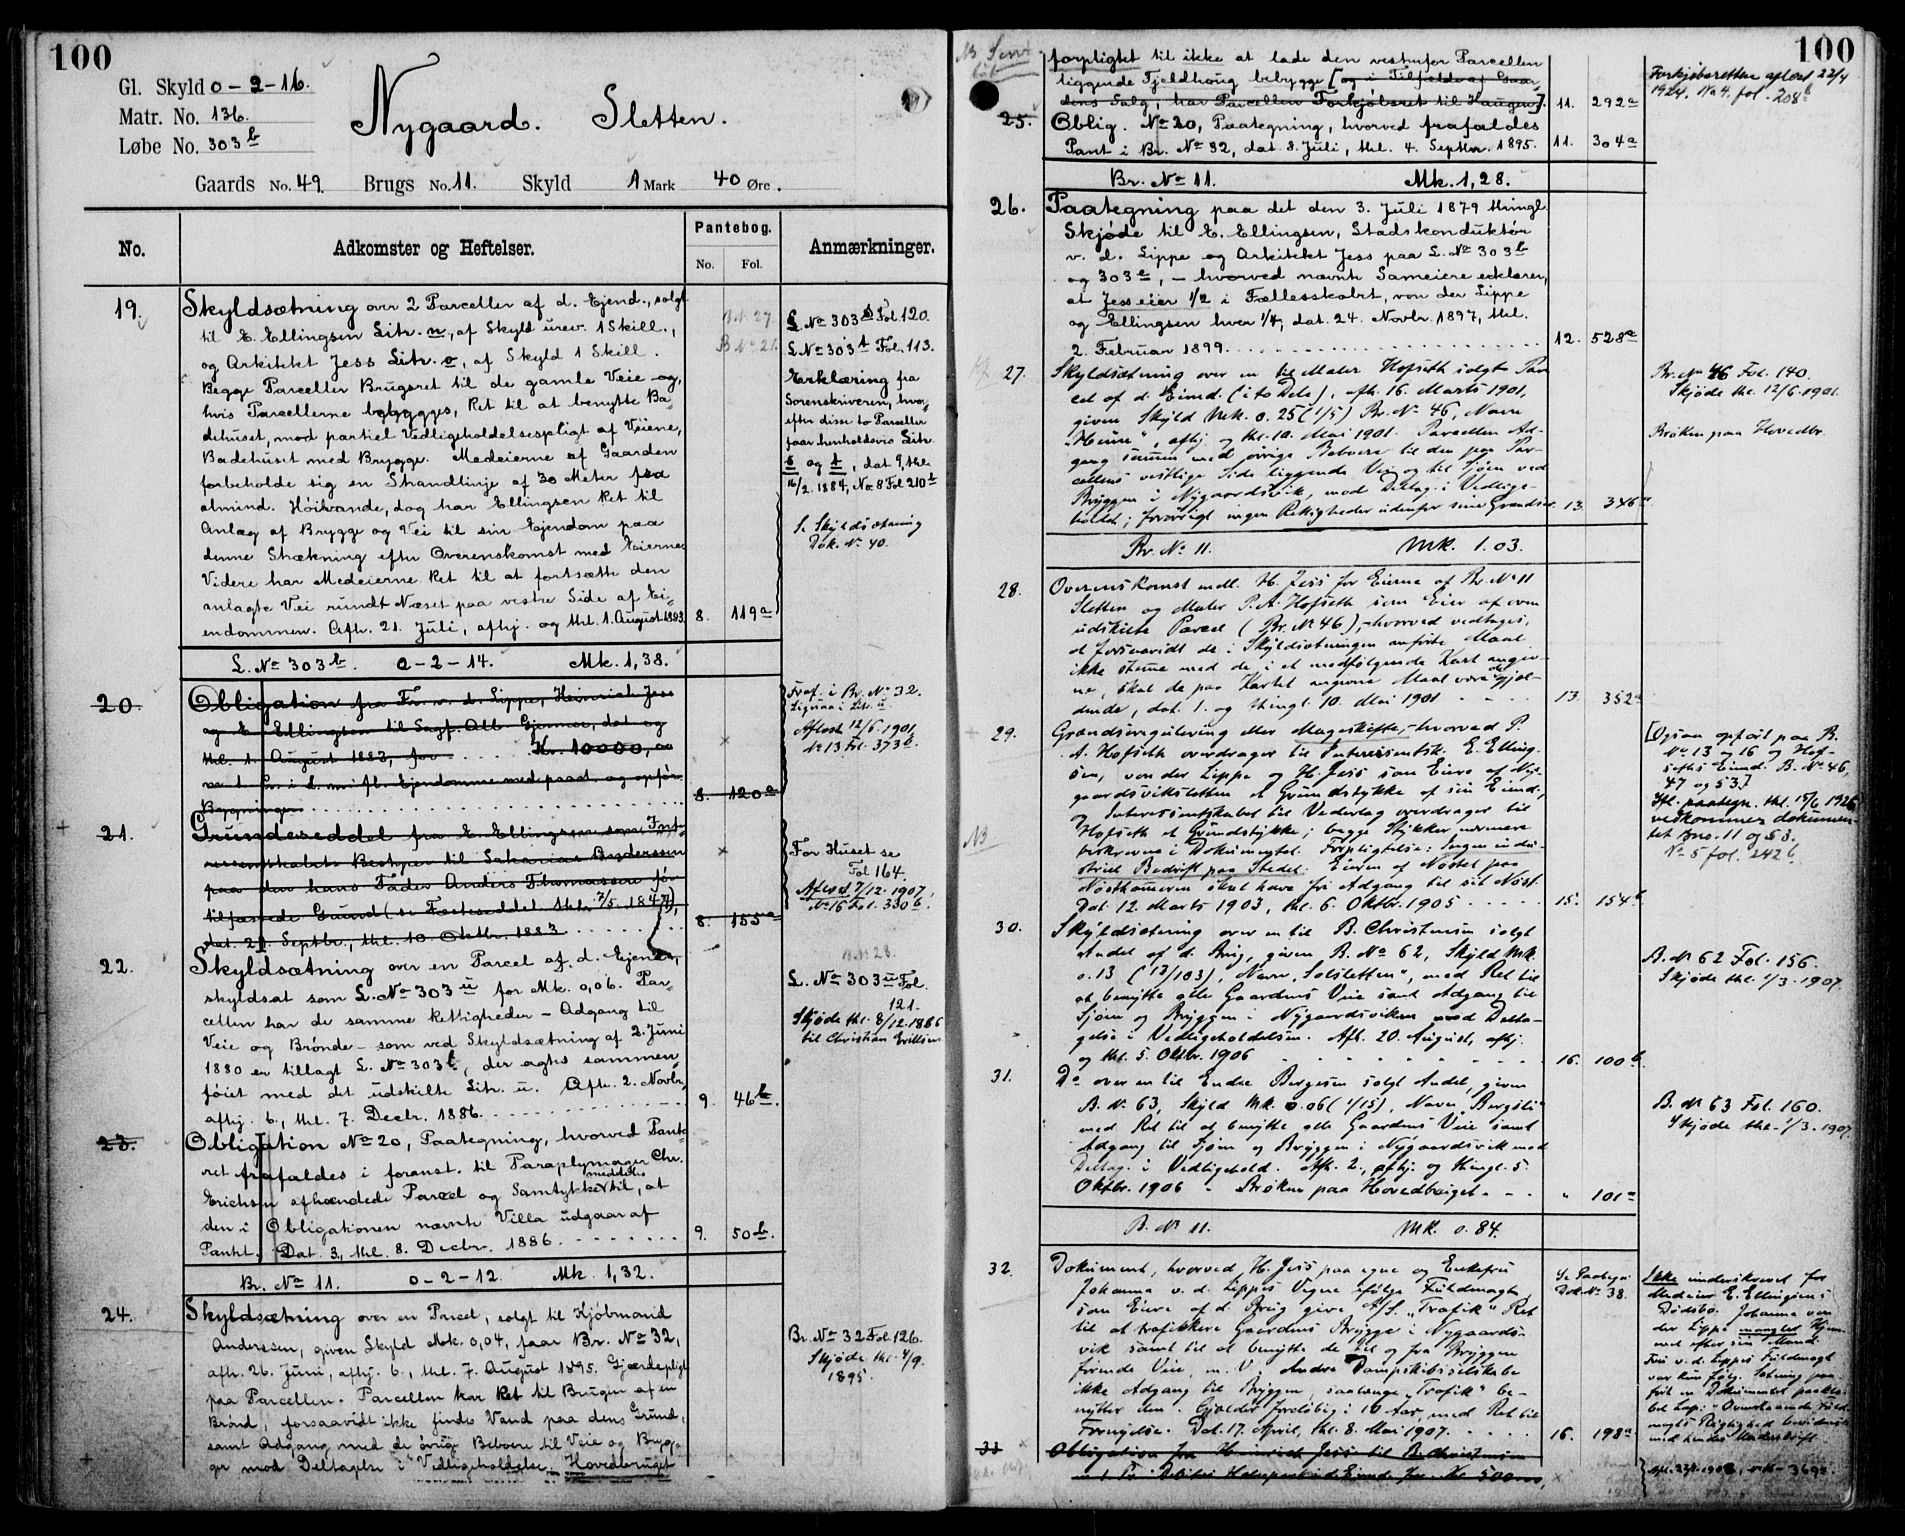 100
Gl. Skyld 0-2-16.
Matr. No. 136.
Løbe No. 303 b
Nygaard. Sletten.
Gaards No. 49. Brugs No. 11. Skyld 1 Mark 40 Øre.
No. Adkomster og Heftelser. Pantebog. No. Fol. Anmærkninger.
19. Skyldsætning over 2 Parceller af d. Ejend., solgt
til E. Ellingsen Litr. n, af Skyld urev. 1 Skill.,
og Arkitekt Jess Litr. o, af Skyld 1 Skill.
Begge Parceller Brugsret til de gamle Veie og,
hvis Parcellerne bebygges, Ret til at benytte Ba-
dehuset, mod partiel Vedligeholdelsespligt af Veiene,
Badehuset med Brygge. Medeierne af Gaarden
forbeholde sig en Strandlinje af 30 Meter fra
almind. Høivande, dog har Ellingsen Ret til
Anlæg af Brygge og Vei til sin Ejendom paa
denne Strækning efter Overenskomst med Eierne.
Videre har Medeierne Ret til at fortsætte den
anlagte Vei rundt Næset paa vestre Side af Ei-
endommen. Afh. 21. Juli, afhj. og thl. 1. August 1883. 8. 119 a
L. No 303 s Fol. 120.
L No 303 t Fol. 113.
Erklæring fra
Sorenskriveren, hvor-
efter disse to Parceller
faar henholdsvis Litr.
s og t, dat 9, thl.
16/2. 1884, No 8 Fol 210 b
Se Skyldsætning
Dok. No 40.
L. No 303 b. 0-2-14. Mk. 1,38.
20. Obligation fra Fr. v. d. Lippe, Heinrich Jess
og E. Ellingsen til Sagf. Alb. Gjerme, dat og
thl. 1. August 1883, for Kr. 10000,00
m. 1. Pr. i d. m. fl. Ejendomme med paast. og opfør.
Bygninger. 8. 120 a
Fraf. i Br. No 32.
Ligesaa i Litr. u
Aflæst 12/6. 1901,
No 13 Fol. 373 b.
21. Grundeseddel fra E. Ellingsen som Int-
eressentskabets Bestyrer til Sakarias Andersen
paa den hans Fader Anders Thomassen før
tilfæstede Grund (se Fæsteseddel thl. 7/5 1847),
dat. 29. Septbr., thl. 10. Oktbr. 1883 8. 155 a
For Huset se
Fol 164.
Aflæst 7/12. 1907,
No 16 Fol. 330 b.
22. Skyldsætning over en Parcel af d. Ejend.,
skyldsat som L. No 303 u for Mk. 0,06. Par-
cellen har de samme Rettigheder – Adgang til
Veie og Brønde – som ved Skyldsætning af 2. Juni
1880 er tillagt L. No 303 l, der agtes sammen-
føiet med det udskilte Litr. u. Afh. 2. Novbr.,
afhj. 6., thl. 7. Decbr. 1886. 9. 46 b.
L. No 303 u Fol.
121.
Skjøde thl. 8/12. 1886
til Christian Erichsen
23. Obligation No 20, Paategning, hvorved Pante-
ret frafaldes i foranst. til Paraplymager Chr.
Erichsen afhændede Parcel og Samtykke meddeles til, at
den i Obligationen nævnte Villa udgaar af
Pantet. Dat. 3, thl. 8. Decbr. 1886. 9. 50 b.
Br. No 11. 0-2-12. Mk. 1,32.
24. Skyldsætning over en Parcel, solgt til Kjøbmand
Andersen, given Skyld Mk. 0,04, faar Br. No 32,
afh. 26. Juni, afhj. 6., thl. 7. August 1895. Gjærdepligt
paa Parcellen. Parcellen har Ret til Brugen af en
Brønd, forsaavidt ikke findes Vand paa dens Grund,
samt Adgang med de øvrige Beboere til Veie og Bryg-
ge mod Deltagelse i Vedligeholdelse. Hovedbruget
Br. No 32 Fol 126.
Skjøde thl. 4/9.
1895.
100
forpligtet til ikke at lade den vestenfor Parcellen
liggende Fjeldhoug bebygge [og i Tilfælde af Gaar-
dens Salg, har Parcellen Forkjøbsret til Haugen]. 11. 292 a
Forkjøbsretten aflæst 22/4
1924. No 4. fol. 208 b
25. Oblig. No 20, Paategning, hvorved frafaldes
Pant i Br. No 32, dat. 8. Juli, thl. 4. Septbr. 1895. 11. 304 a
Br. No 11. Mk. 1,28.
26. Paategning paa det den 3. Juli 1879 thingl.
Skjøde til E. Ellingsen, Stadskonduktør
v. d. Lippe og Arkitekt Jess paa L. No 303 b
og 303 e, – hvorved nævnte Sameiere erklærer,
at Jess eier 1/2 i Fællesskabet, von der Lippe
og Ellingsen hver 1/4, dat. 24. Novbr. 1897, thl.
2. Februar 1899. 12. 528 a
27. Skyldsætning over en til Maler Hofseth solgt Par-
cel af d. Eiend. (i to Dele), afh. 16. Marts 1901,
given Skyld Mk. 0.25 (1/5) Br. No 46, Navn
"Heim", afhj. og thl. 10. Mai 1901. Parcellen Ad-
gang sammen med øvrige Beboere til den paa Par-
cellens vestlige Side liggende Vei og til Sjøen ved
Bryggen i Nygaardsvik, mod Deltag. i Vedlige-
holdet; forøvrigt ingen Rettigheder udenfor sine Grændser 13. 346 a
Br. No 46 Fol. 140.
Skjøde thl. 12/6. 1901.
Brøken paa Hovedbr.
Br. No 11. Mk. 1.03.
28. Overenskomst mell. H. Jess for Eierne af Br. No 11
Sletten og Maler P. A. Hofseth som Eier af oven
udskilte Parcel (Br. No 46) – hvorved vedtages,
at forsaavidt de i Skyldsætningen anførte Maal
ikke stemme med de, i et medfølgende Kart angiv-
ne, skal de paa Kartet angivne Maal være de gjæl-
dende, dat. 1. og thingl. 10. Mai 1901 13. 352 a
29. Grændseregulering eller Mageskifte, – hvorved P.
A. Hofseth overdrager til Interessentsk. E. Elling-
sen, von der Lippe og H. Jess som Eiere af Ny-
gaardsviksletten et Grundstykke af sin Eiend.,
og Interessentskabet til Vederlag overdrager til
Hofseth et Grundstykke; begge Stykker nærmere
beskrevne i Dokumentet. Forpligtelse: Ingen indu-
striel Bedrift paa Stedet. Eieren af Nøstet paa
Nøsttomten skal have fri Adgang til sit Nøst.
Dat. 12. Marts 1903, thl. 6. Oktbr. 1905 15. 154 b
[Ogsaa opført paa B.
No 13 og 16 og Hof-
seths Eiend. B. No 46,
47 og 53.]
Ifl. paategn. thl. 15/6 1926
vedkommer dokumen-
tet Bno. 11 og 53.
No 5 fol. 242 b
30. Skyldsætning over en til B. Christensen solgt
Andel af d. Brug, given B. No 62, Skyld Mk.
0.13 (13/103), Navn "Solsletten", med Ret til
at benytte alle Gaardens Veie samt Adgang til
Sjøen og Bryggen i Nygaardsviken mod Delta-
gelse i Vedligeholdelsen. Afh. 20. August, afhj.
og thl. 5. Oktbr. 1906 16. 100 b
B. No 62 Fol. 156.
Skjøde thl. 1/3. 1907.
31. Do over en til Endre Bergesen solgt Andel, given
B. No 63, Skyld Mk. 0.06 (1/15), Navn "Bergsli"
med Ret til at benytte alle Gaardens Veie samt
Adgang til Sjøen og Bryggen i Nygaardsvik mod
Deltag. i Vedligehold. Afh. 2., afhj. og thingl. 5.
Oktbr. 1906 - Brøken paa Hovedbruget. " 101 a
B. No 63 Fol. 160.
Skjøde thl. 1/3. 1907.
B. No 11. Mk. 0.84.
32. Dokument, hvorved H. Jess paa egne og Enkefru
Johanna v. d. Lippes Vegne ifølge Fuldmagt
som Eiere af d. Brug give A/S. "Trafik" Ret
til at trafikkere Gaardens Brygge i Nygaards-
vik samt til at benytte de til og fra Bryggen
førende Veie, m. V. Andre Dampskibsselskabe
ikke Adgang til Bryggen, saalænge "Trafik" be-
nytter den. Gjælder foreløbig i 10 Aar, med Ret til
Fornyelse. Dat. 17. April, thl. 8. Mai 1907. 16. 198 a
Se Paategn.
Dok. No 38.
Ikke underskrevet for
Medeier E. Ellingsens
Dødsbo. Johanna von
der Lippe mangler Hjem-
mel efter sin Mand.
Fru v. d. Lippes Fuldmagt
33. Obligation fra Heinrich Jess til B. Christensen